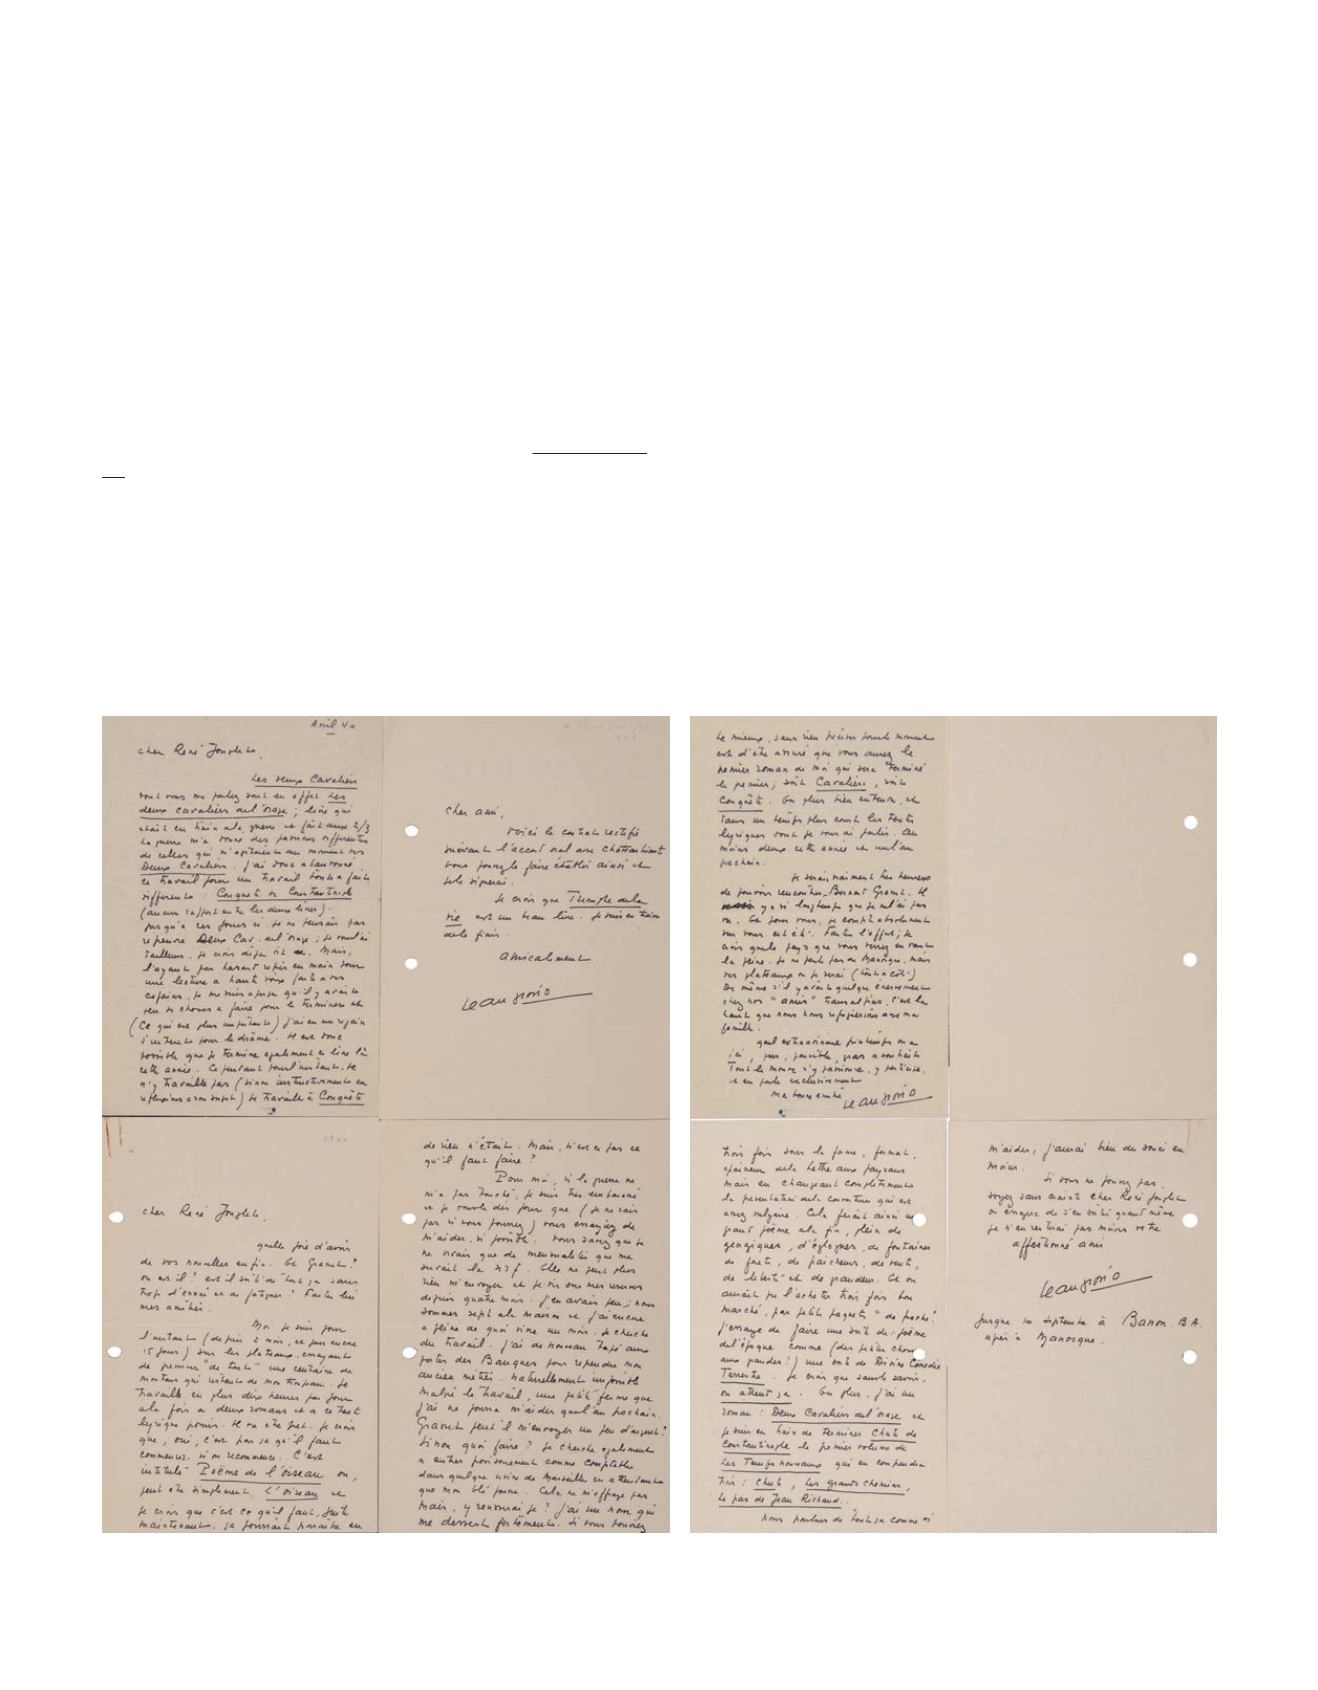 Avril 40
cher René Jouglet,
Les deux Cavaliers
dont vous me parlez sont en effet Les
deux cavaliers de l'orage ; livre qui
était en train à la guerre et fait aux 2/3
La guerre m'a donné des passions différentes
de celles qui m'agitaient au moment des
Deux Cavaliers. J'ai donc abandonné
ce travail pour un travail tout à fait
différent : Conquête de Constantinople
(aucun rapport entre les deux livres).
Jusqu'à ces jours ci je ne pensais pas
reprendre Deux Cav. de l'orage ; je vous l'ai
d'ailleurs, je crois déjà dit. Mais,
l'ayant par hasard repris en main pour
une lecture à haute voix faite à des
copains, je me suis aperçu qu'il y avait
peu de choses à faire pour le terminer et
(ce qui est plus important) j'ai eu un regain
d'intérêt pour le drame. Il est donc
possible que je termine également ce livre là
cette année. Cependant pour l'instant, je
n'y travaille pas (sinon instinctivement en
réflexions à son sujet) je travaille à Conquête
cher ami,
voici le contrat rectifié
suivant l'accord oral avec Chateaubriant
vous pouvez le faire établir ainsi et
je le signerai.
Je crois que Triomphe de la
vie est un beau livre. Je suis en train
de le finir.
Amicalement
Jean Giono
Le mieux, sans rien préciser pour le moment
est d'être assuré que vous aurez le
premier roman de moi qui sera terminé
le premier ; soit Cavaliers, soit
Conquête. En plus bien entendu, et
dans un temps plus court les textes
lyriques dont je vous ai parlé. Au
moins deux cette année et un l'an
prochain.
Je serais vraiment très heureux
de pouvoir rencontrer Bernard Grasset. Il
y a si longtemps que je ne l'ai pas
vu. Et pour vous, je compte absolument
sur vous cet été. Faites l'effort ; je
crois que le pays que vous verrez en vaut
la peine. Je ne parle pas de Manosque, mais
des plateaux où je serai (tout à côté)
De même s'il y avait quelque énervement
chez nos "amis" transalpins, c'est là
haut que nous nous réfugierions avec ma
famille.
Quel extraordinaire printemps on a
ici, pur, paisible, gras à souhait
Tout le monde s'y passionne, y participe,
et en parle exclusivement
ma bonne amitié Jean Giono
cher René Jouglet,
quelle joie d'avoir
de vos nouvelles enfin. Et Grasset ?
où est il ? est il sorti de tout ça sans
trop d'ennui et de fatigue ? Faites lui
mes amitiés.
Moi je suis pour
l'instant (depuis 2 mois, et pour encore
15 jours) sur les plateaux, essayant
de "de tout" une centaine de
moutons qui de mon troupeau. Je
travaille en plus dix heures par jour
à la fois à deux romans et à ce texte
lyrique promis. Il va être prêt. Je crois
que, oui, c'est par ça qu'il faut
commencer, si on recommence. C'est
intitulé Poème de l'oiseau ou,
peut être simplement, L'oiseau et
je crois que c'est ce qu'il faut, juste
maintenant, ça pourrait paraître en
de rien n'était. Mais, n'est ce pas ce
qu'il faut faire ?
Pour moi, si la guerre ne
m'a pas touché, je suis très embarrassé
et je voudrais pour que (je ne sais
pas si vous pourrez) vous essayiez de
m'aider, si possible. Vous savez que je
ne vivais que de mensualités que me
servait la nrf. Elle ne peut plus
rien m'envoyer et je vis sur mes réserves
depuis quatre mois. J'en avais peu ; nous
sommes sept à la maison et j'ai encore
à peine de quoi vivre un mois. Je cherche
du travail. J'ai de nouveau tapé aux
portes des Banques pour reprendre mon
ancien métier. Naturellement impossible
Malgré le travail, une petite ferme que
j'ai ne pourra m'aider que l'an prochain.
Grasset peut il m'envoyer un peu d'argent ?
Sinon quoi faire ? Je cherche également
à entrer provisoirement comme comptable
dans quelque usine de Marseille en attendant
que mon blé pousse. Cela ne m'effraye pas
mais, y réussirai je ? J'ai un nom qui
me dessert fortement. Si vous pouviez
trois fois sous la forme, format,
épaisseur de la Lettre aux paysans
mais en changeant complètement
la présentation de la couverture qui est
assez vulgaire. Cela ferait ainsi un
grand poème à la fin, plein de
géorgiques, d'églogues, de fontaines
de forêts, de fraîcheur, de vent,
de liberté et de grandeur. Et on
aurait pu l'acheter trois fois bon
marché, par petits paquets "de poche".
J'essaye de faire une sorte de poème
de l'époque comme (des petites choses
aux grandes !) une sorte de Divine Comédie
Terrestre. Je crois que sans le savoir,
on attend ça. En plus, j'ai un
roman : Deux Cavaliers de l'orage et
je suis en train de terminer Chute de
Constantinople le premier volume de
Les Temps nouveaux qui en comprendra
trois : Chute, Les Grands chemins,
Le pas de Jean Richaud.
Nous parlons de tout ça comme si
m'aider, j'aurai bien du souci en
moins.
Si vous ne pouvez pas,
soyez sans crainte cher René Jouglet
on essayera de s'en sortir quand même
je n'en resterai pas moins votre
affectionné ami
Jean Giono
Jusque 10 septembre à Banon. B.A.
après à Manosque.